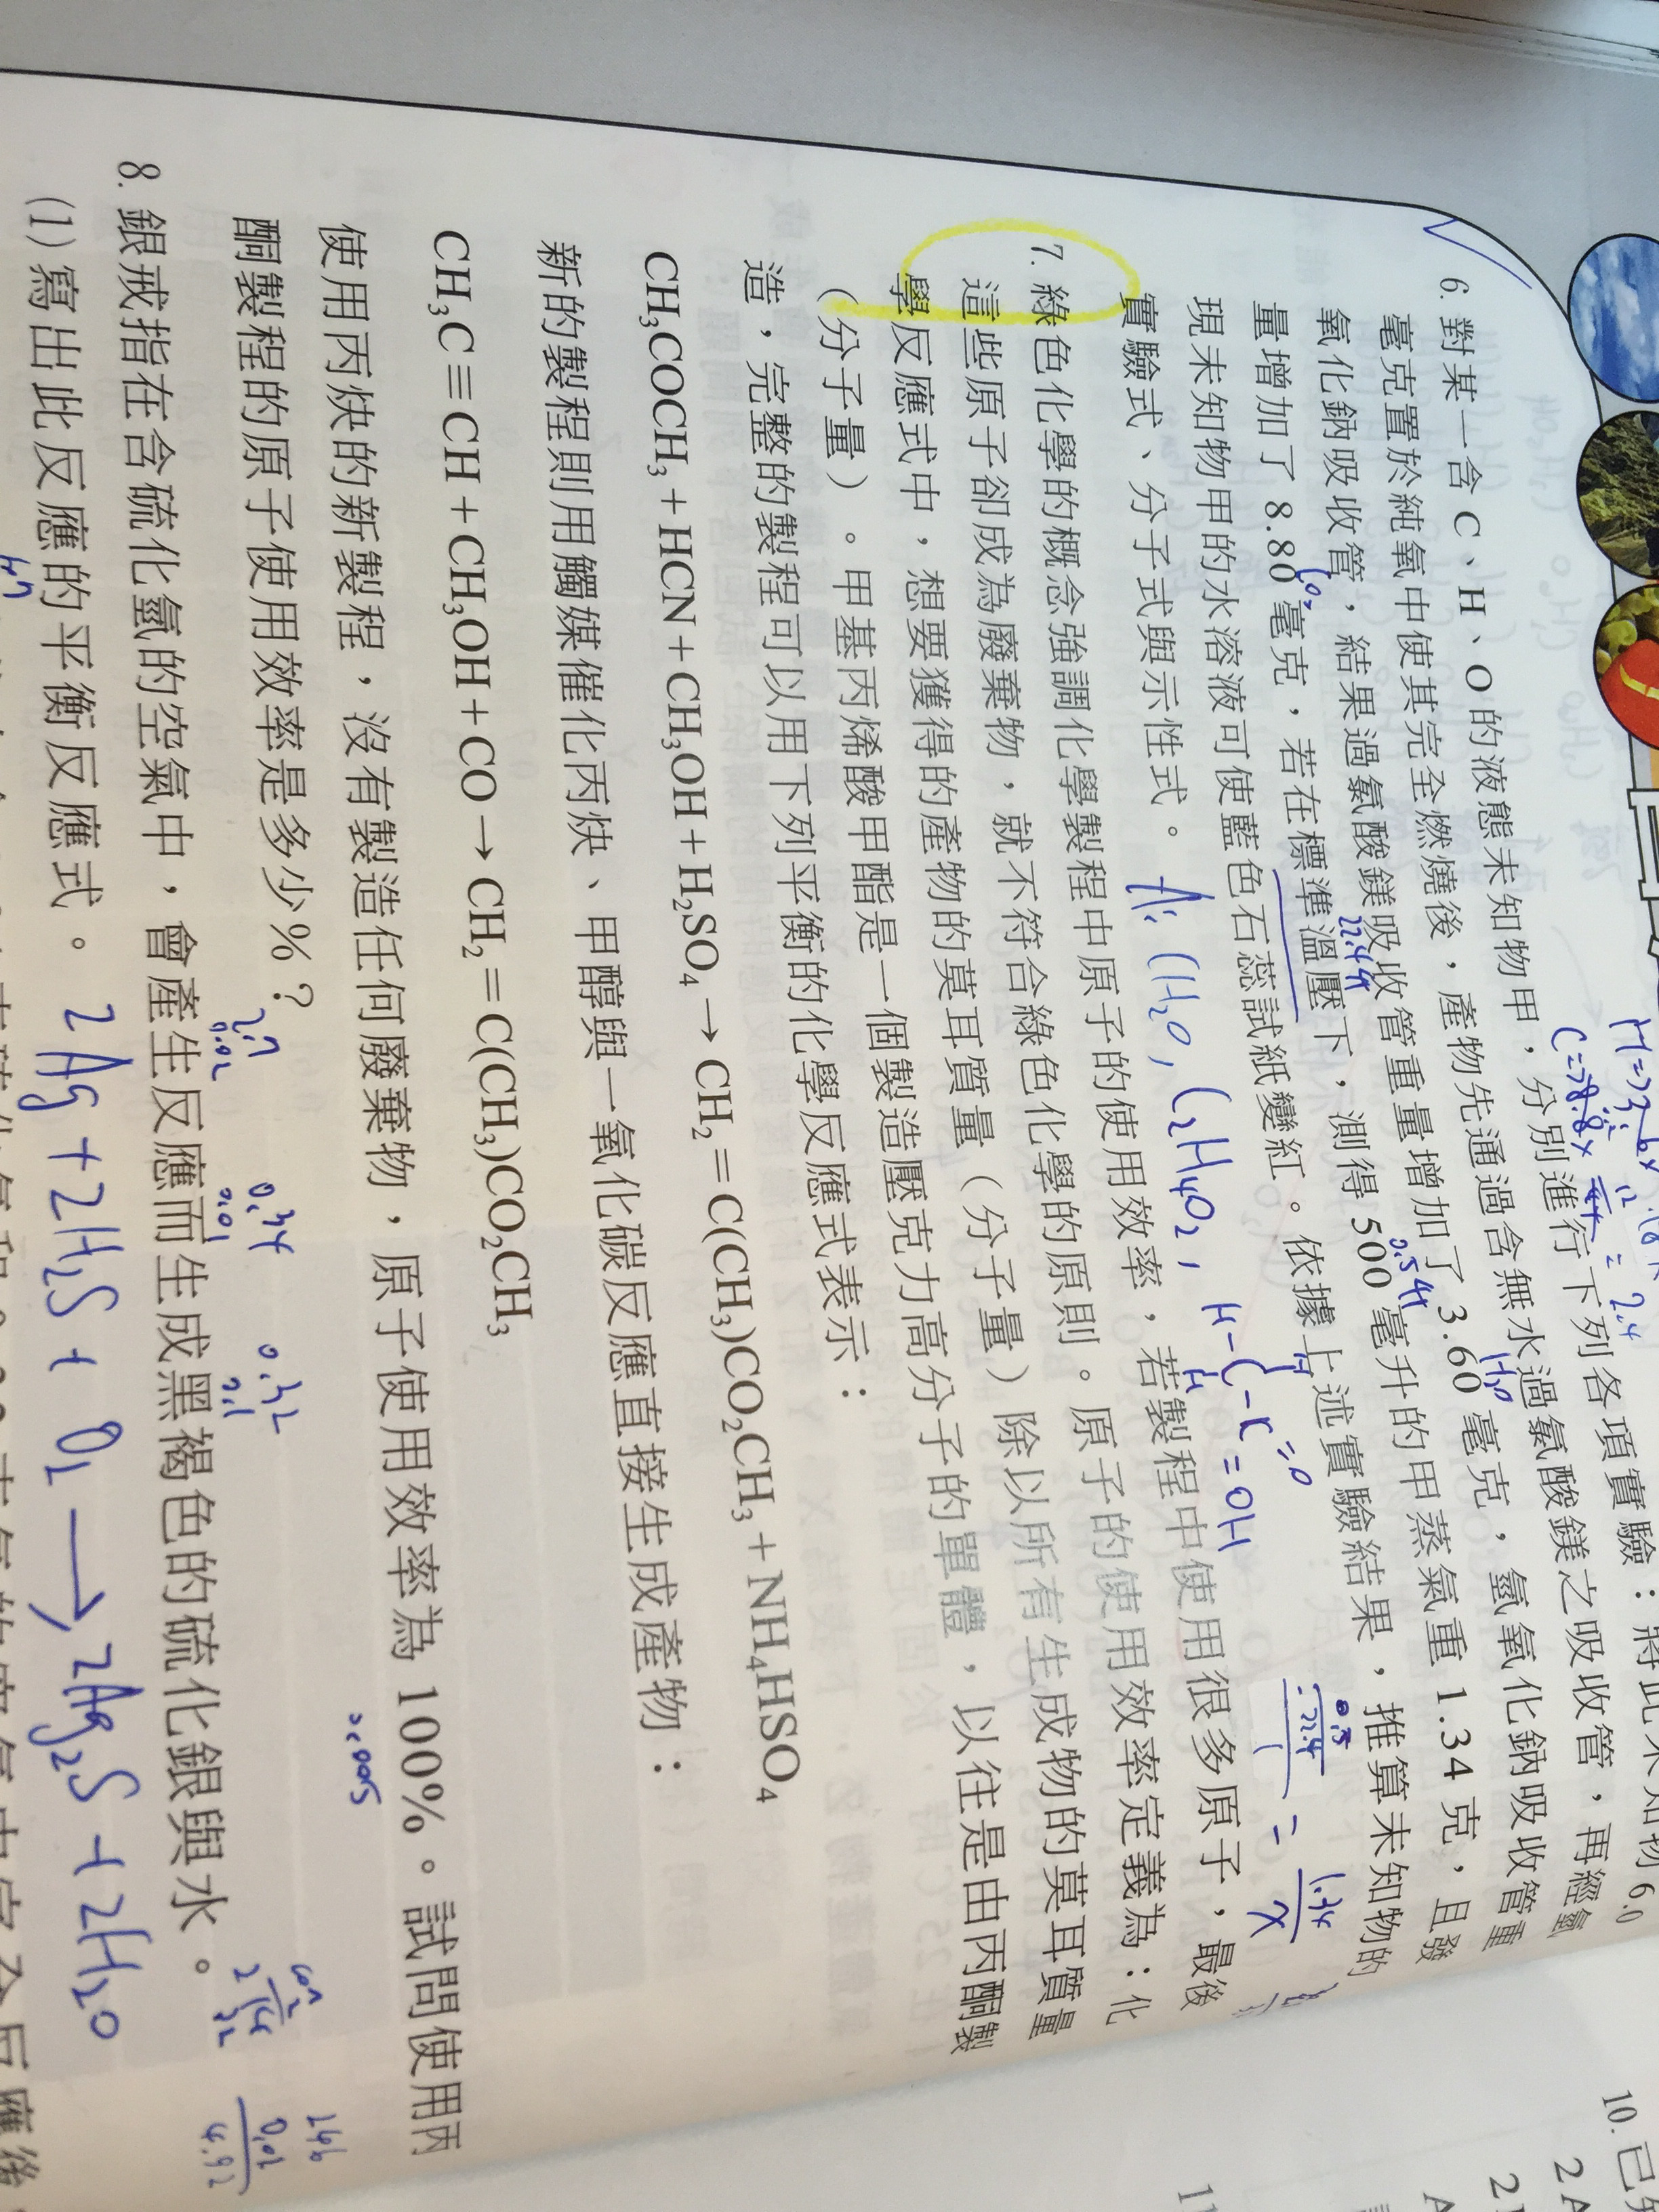 6. 對某一含 C、H、O 的液態未知物甲,分別進行下列各項實驗:將此未知物 6.0
毫克置於純氧中使其完全燃燒後,產物先通過含無水過氯酸鎂之吸收管,再經氫
氧化鈉吸收管,結果過氯酸鎂吸收管重量增加了 3.60 毫克,氫氧化鈉吸收管重
量增加了 8.80 毫克,若在標準溫壓下,測得 500 毫升的甲蒸氣重 1.34 克,且發
現未知物甲的水溶液可使藍色石蕊試紙變紅。依據上述實驗結果,推算未知物的
實驗式、分子式與示性式。
7. 綠色化學的概念強調化學製程中原子的使用效率,若製程中使用很多原子,最後
這些原子卻成為廢棄物,就不符合綠色化學的原則。原子的使用效率定義為:化
學反應式中,想要獲得的產物的莫耳質量(分子量)除以所有生成物的莫耳質量
(分子量)。甲基丙烯酸甲酯是一個製造壓克力高分子的單體,以往是由丙酮製
造,完整的製程可以用下列平衡的化學反應式表示:
CH₃COCH₃ + HCN + CH₃OH + H₂SO₄ → CH₂ = C(CH₃)CO₂CH₃ + NH₄HSO₄
新的製程則用觸媒催化丙炔、甲醇與一氧化碳反應直接生成產物:
CH₃C ≡ CH + CH₃OH + CO → CH₂ = C(CH₃)CO₂CH₃
使用丙炔的新製程,沒有製造任何廢棄物,原子使用效率為 100%。試問使用丙
酮製程的原子使用效率是多少%?
8. 銀戒指在含硫化氫的空氣中,會產生反應而生成黑褐色的硫化銀與水。
(1) 寫出此反應的平衡反應式。 2Ag + 2H₂S + O₂ → 2Ag₂S + 2H₂O
10. 已知